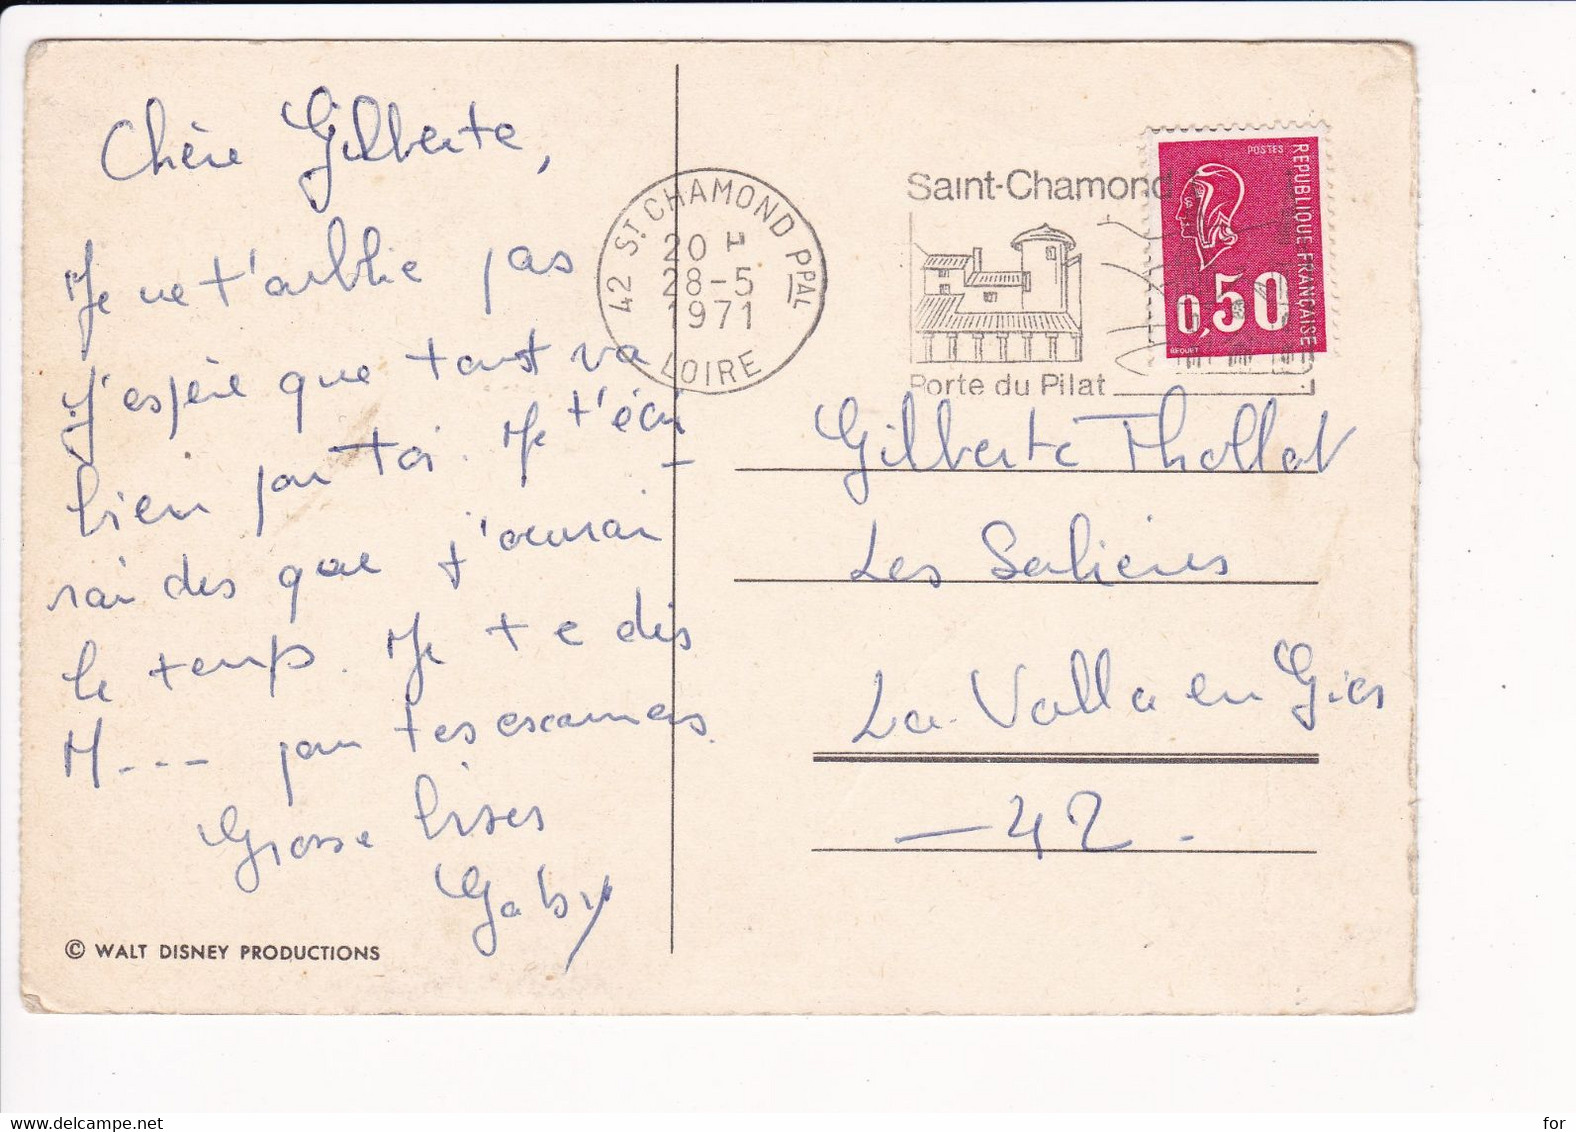 Chère Gilberte,
Je ne t'oublie pas
j'espère que tout va
bien pour toi. Je t'écri
rai des que j'aurai
le temps. Je te dis
M--- pour tes examens.
Grosse bises
Gaby
© WALT DISNEY PRODUCTIONS
42 ST CHAMOND PPAL
20 H
28-5
1971
LOIRE
Saint-Chamond
Porte du Pilat
POSTES
REPUBLIQUE FRANÇAISE
0,50
BEQUET
Gilberte Thollot
Les Salières
La Valla en Gier
- 42 -
for